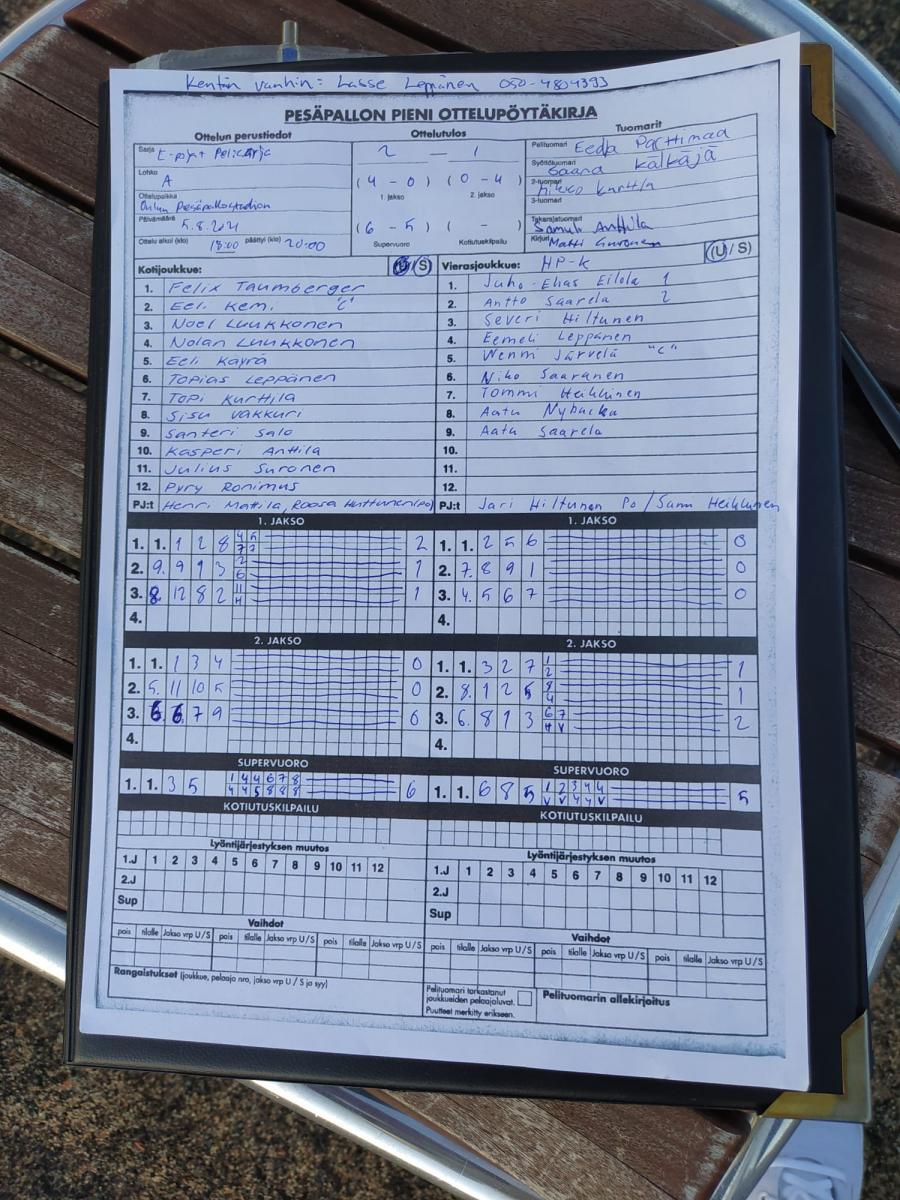 Kentän vanhin: Lasse Leppänen 050-4804393
PESÄPALLON PIENI OTTELUPÖYTÄKIRJA
Ottelun perustiedot
Ottelutulos
Tuomarit
Sarja E-pojat
2 — 1
Pelituomari Eedla
Syöttötuomari Saana Kälkäjä
Lohko A
(4 - 0) (0 - 4)
1. jakso 2. jakso
2-tuomari
3-tuomari
Ottelupaikka Oulun Pesäpallostadion
Päivämäärä 5.8.2021
(6 - 5) ( - )
Supervuoro Kotiutuskilpailu
Takarajatuomari Samuli Anttila
Kirjuri Matti Suronen
Ottelu alkoi (klo) 18:00 päättyi (klo) 20:00
Kotijoukkue: (U / S)
1. Felix Taumberger
2. Eeli Kemi "C"
3. Noel Luukkonen
4. Nolan Luukkonen
5. Eeli Käyrä
6. Topias Leppänen
7. Topi Kurttila
8. Sisu Vakkuri
9. Santeri Salo
10. Kasperi Anttila
11. Julius Suronen
12. Pyry Ronimus
PJ:t Henri Mattila, Roosa Huttunen (po)
Vierasjoukkue: HP-K (U / S)
1. Juho-Elias Eilola 1
2. Antto Saarela 2
3. Severi Hiltunen
4. Eemeli Leppänen
5. Wenni Järvelä "C"
6. Niko Saaranen
7. Tommi Heikkinen
8. Aatu Nybacka
9. Aatu Saarela
10.
11.
12.
PJ:t Jari Hiltunen Po / Sami Heikkinen
1. JAKSO
1. 1. 1 2 8 2
2. 9. 9 1 3 2 6 1
3. 8 12 8 2 11 1
4.
1. JAKSO
1. 1. 2 5 6 0
2. 7. 8 9 1 0
3. 4. 5 6 7 0
4.
2. JAKSO
1. 1. 1 3 4 0
2. 5. 11 10 5 0
3. 6. 6 7 9 0
4.
2. JAKSO
1. 1. 3 2 7 1 2 1
2. 8. 1 2 5 8 4 1
3. 6. 8 1 3 6 7 V 2
4.
SUPERVUORO
1. 1. 3 5 1 4 4 6 7 8 4 4 5 8 8 8 6
SUPERVUORO
1. 1. 6 8 5 1 2 3 4 4 V V 4 4 V 5
KOTIUTUSKILPAILU
KOTIUTUSKILPAILU
Lyöntijärjestyksen muutos
1.J 1 2 3 4 5 6 7 8 9 10 11 12
2.J
Sup
Lyöntijärjestyksen muutos
1.J 1 2 3 4 5 6 7 8 9 10 11 12
2.J
Sup
Vaihdot
pois tilalle Jakso vrp U / S pois tilalle Jakso vrp U / S pois tilalle Jakso vrp U / S
Vaihdot
pois tilalle Jakso vrp U / S pois tilalle Jakso vrp U / S pois tilalle Jakso vrp U / S
Rangaistukset (joukkue, pelaaja nro, jakso vrp U / S ja syy)
Pelituomari tarkastanut
joukkueiden pelaajaluvat.
Puutteet merkitty erikseen.
Pelituomarin allekirjoitus